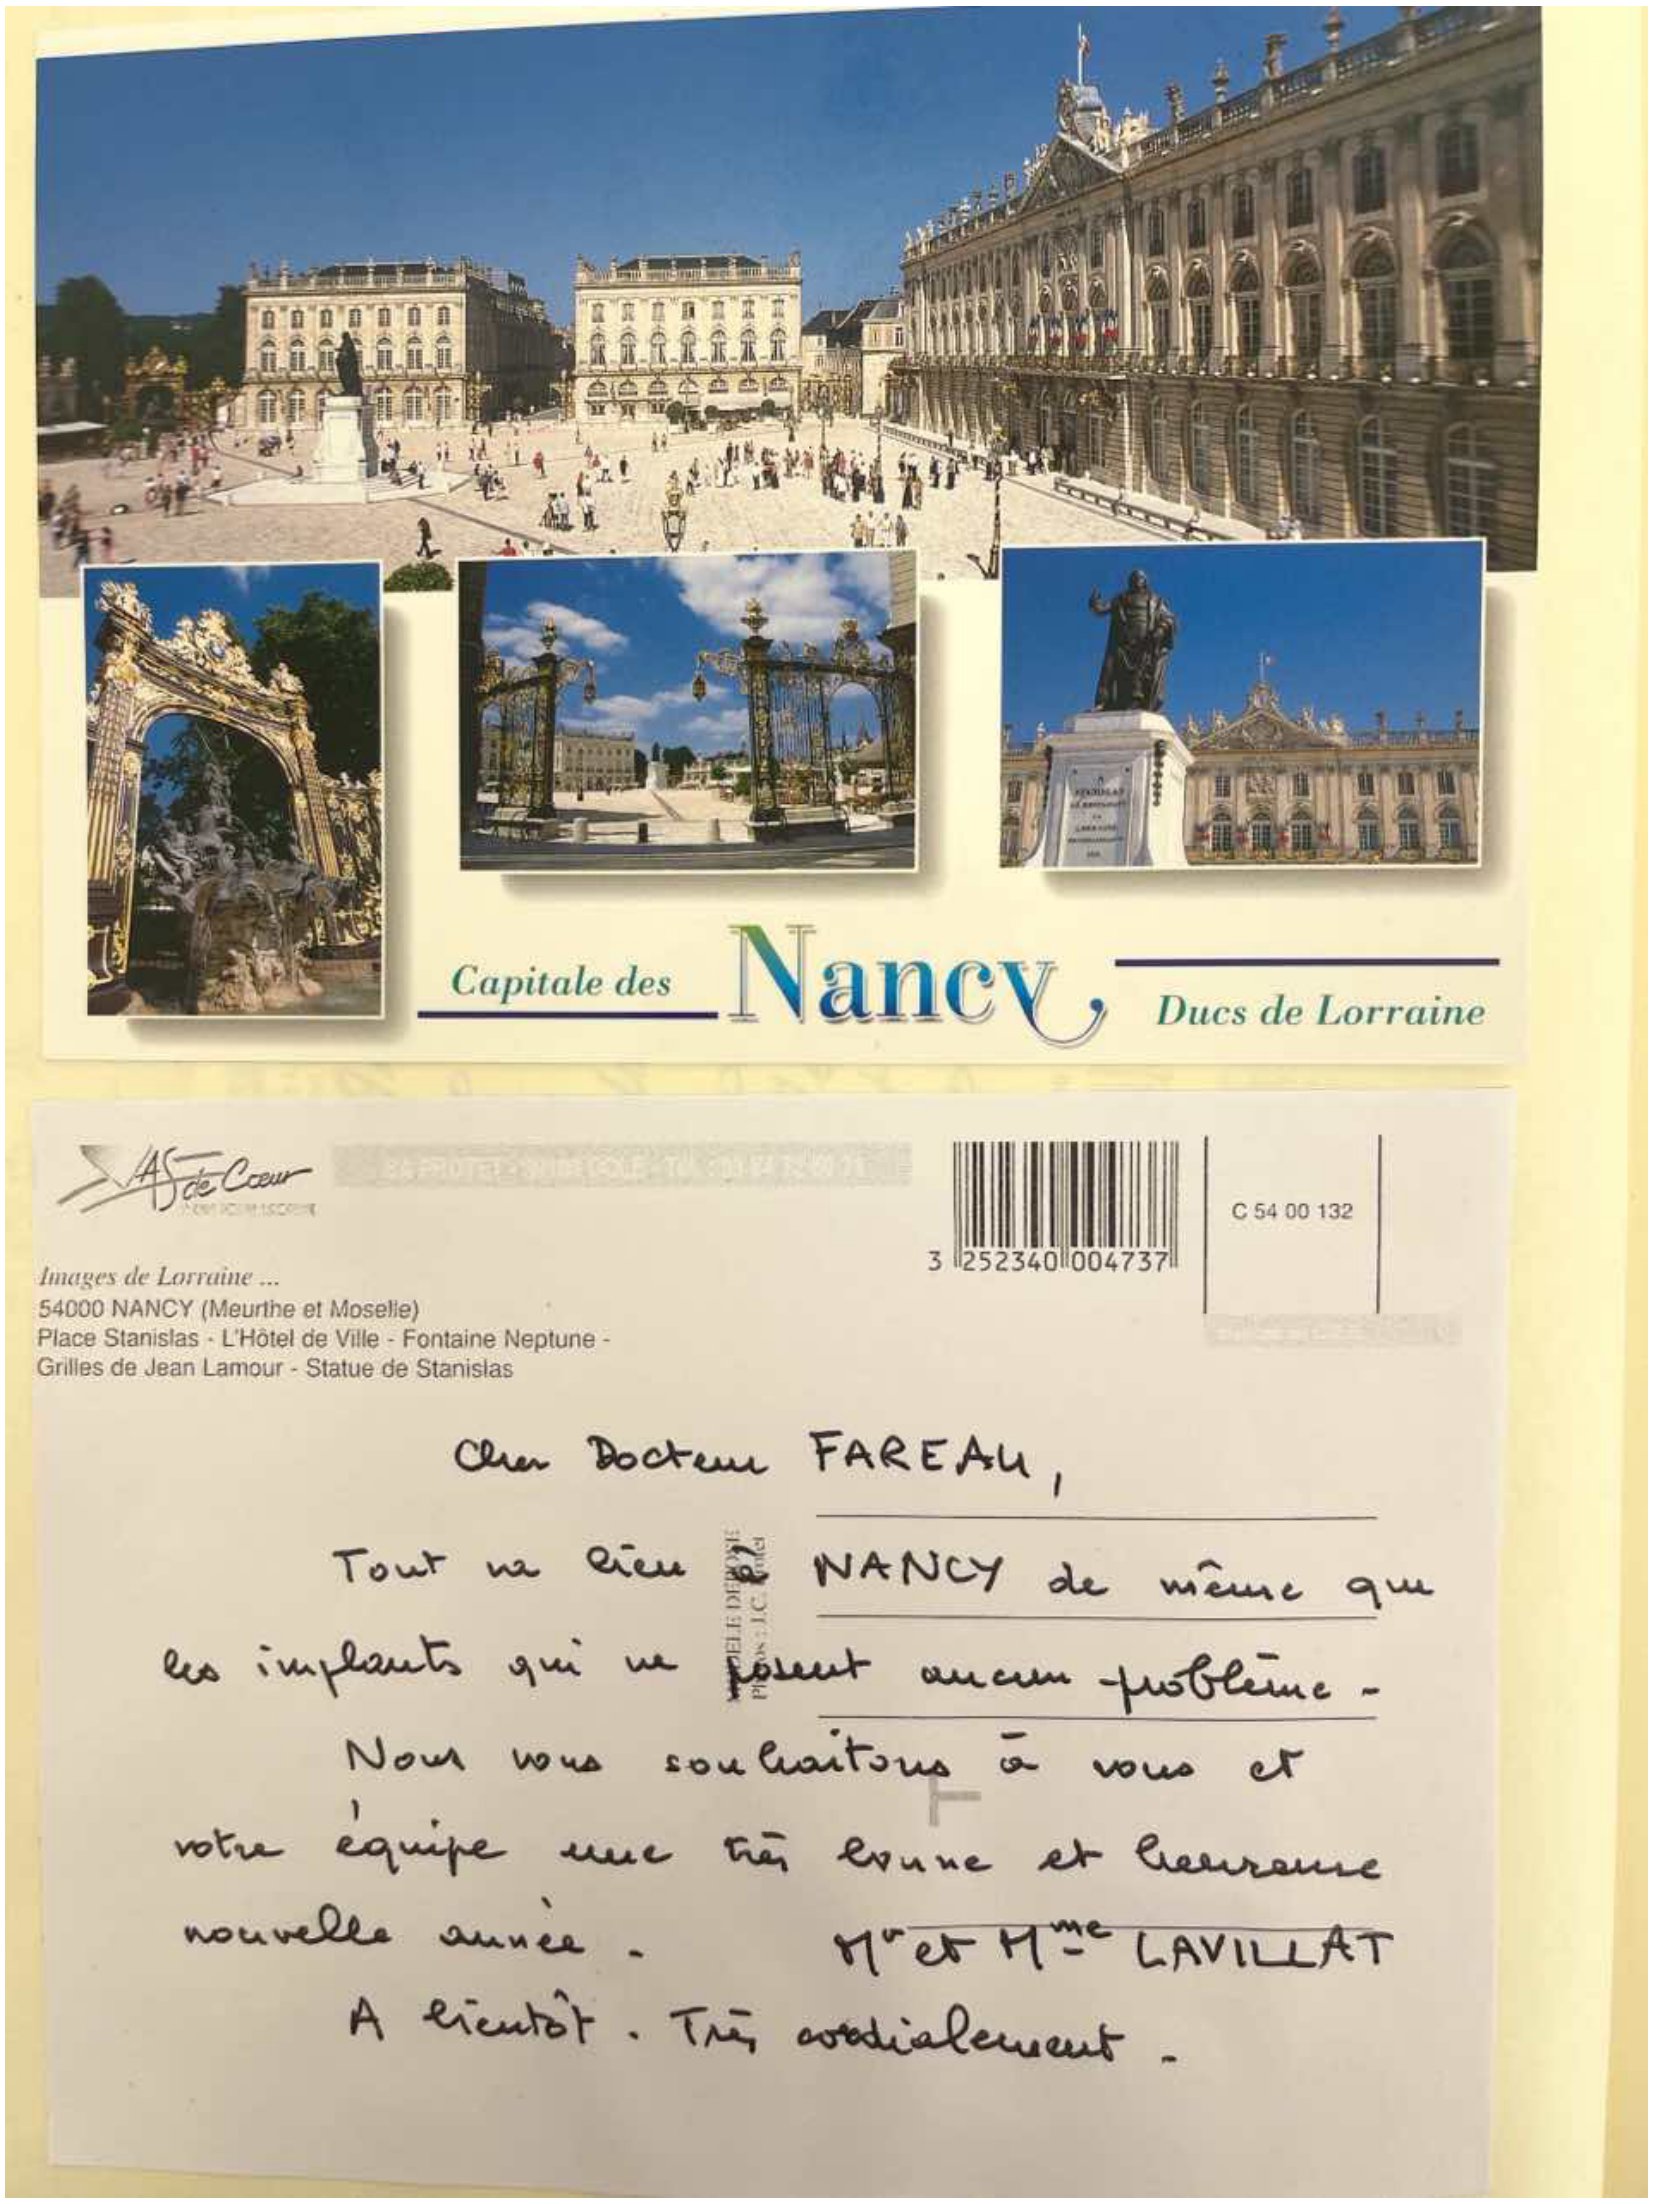 Capitale des Nancy Ducs de Lorraine
STANISLAS
LORRAINE
AS de Cœur
3 252340 004737
C 54 00 132
Images de Lorraine ...
54000 NANCY (Meurthe et Moselle)
Place Stanislas - L'Hôtel de Ville - Fontaine Neptune -
Grilles de Jean Lamour - Statue de Stanislas
Cher Docteur FAREAU,
Tout va bien à NANCY de même que
les implants qui ne posent aucun problème -
Nous vous souhaitons à vous et
votre équipe une très bonne et heureuse
nouvelle année.
Mr et Mme LAVILLAT
A bientôt. Très cordialement.